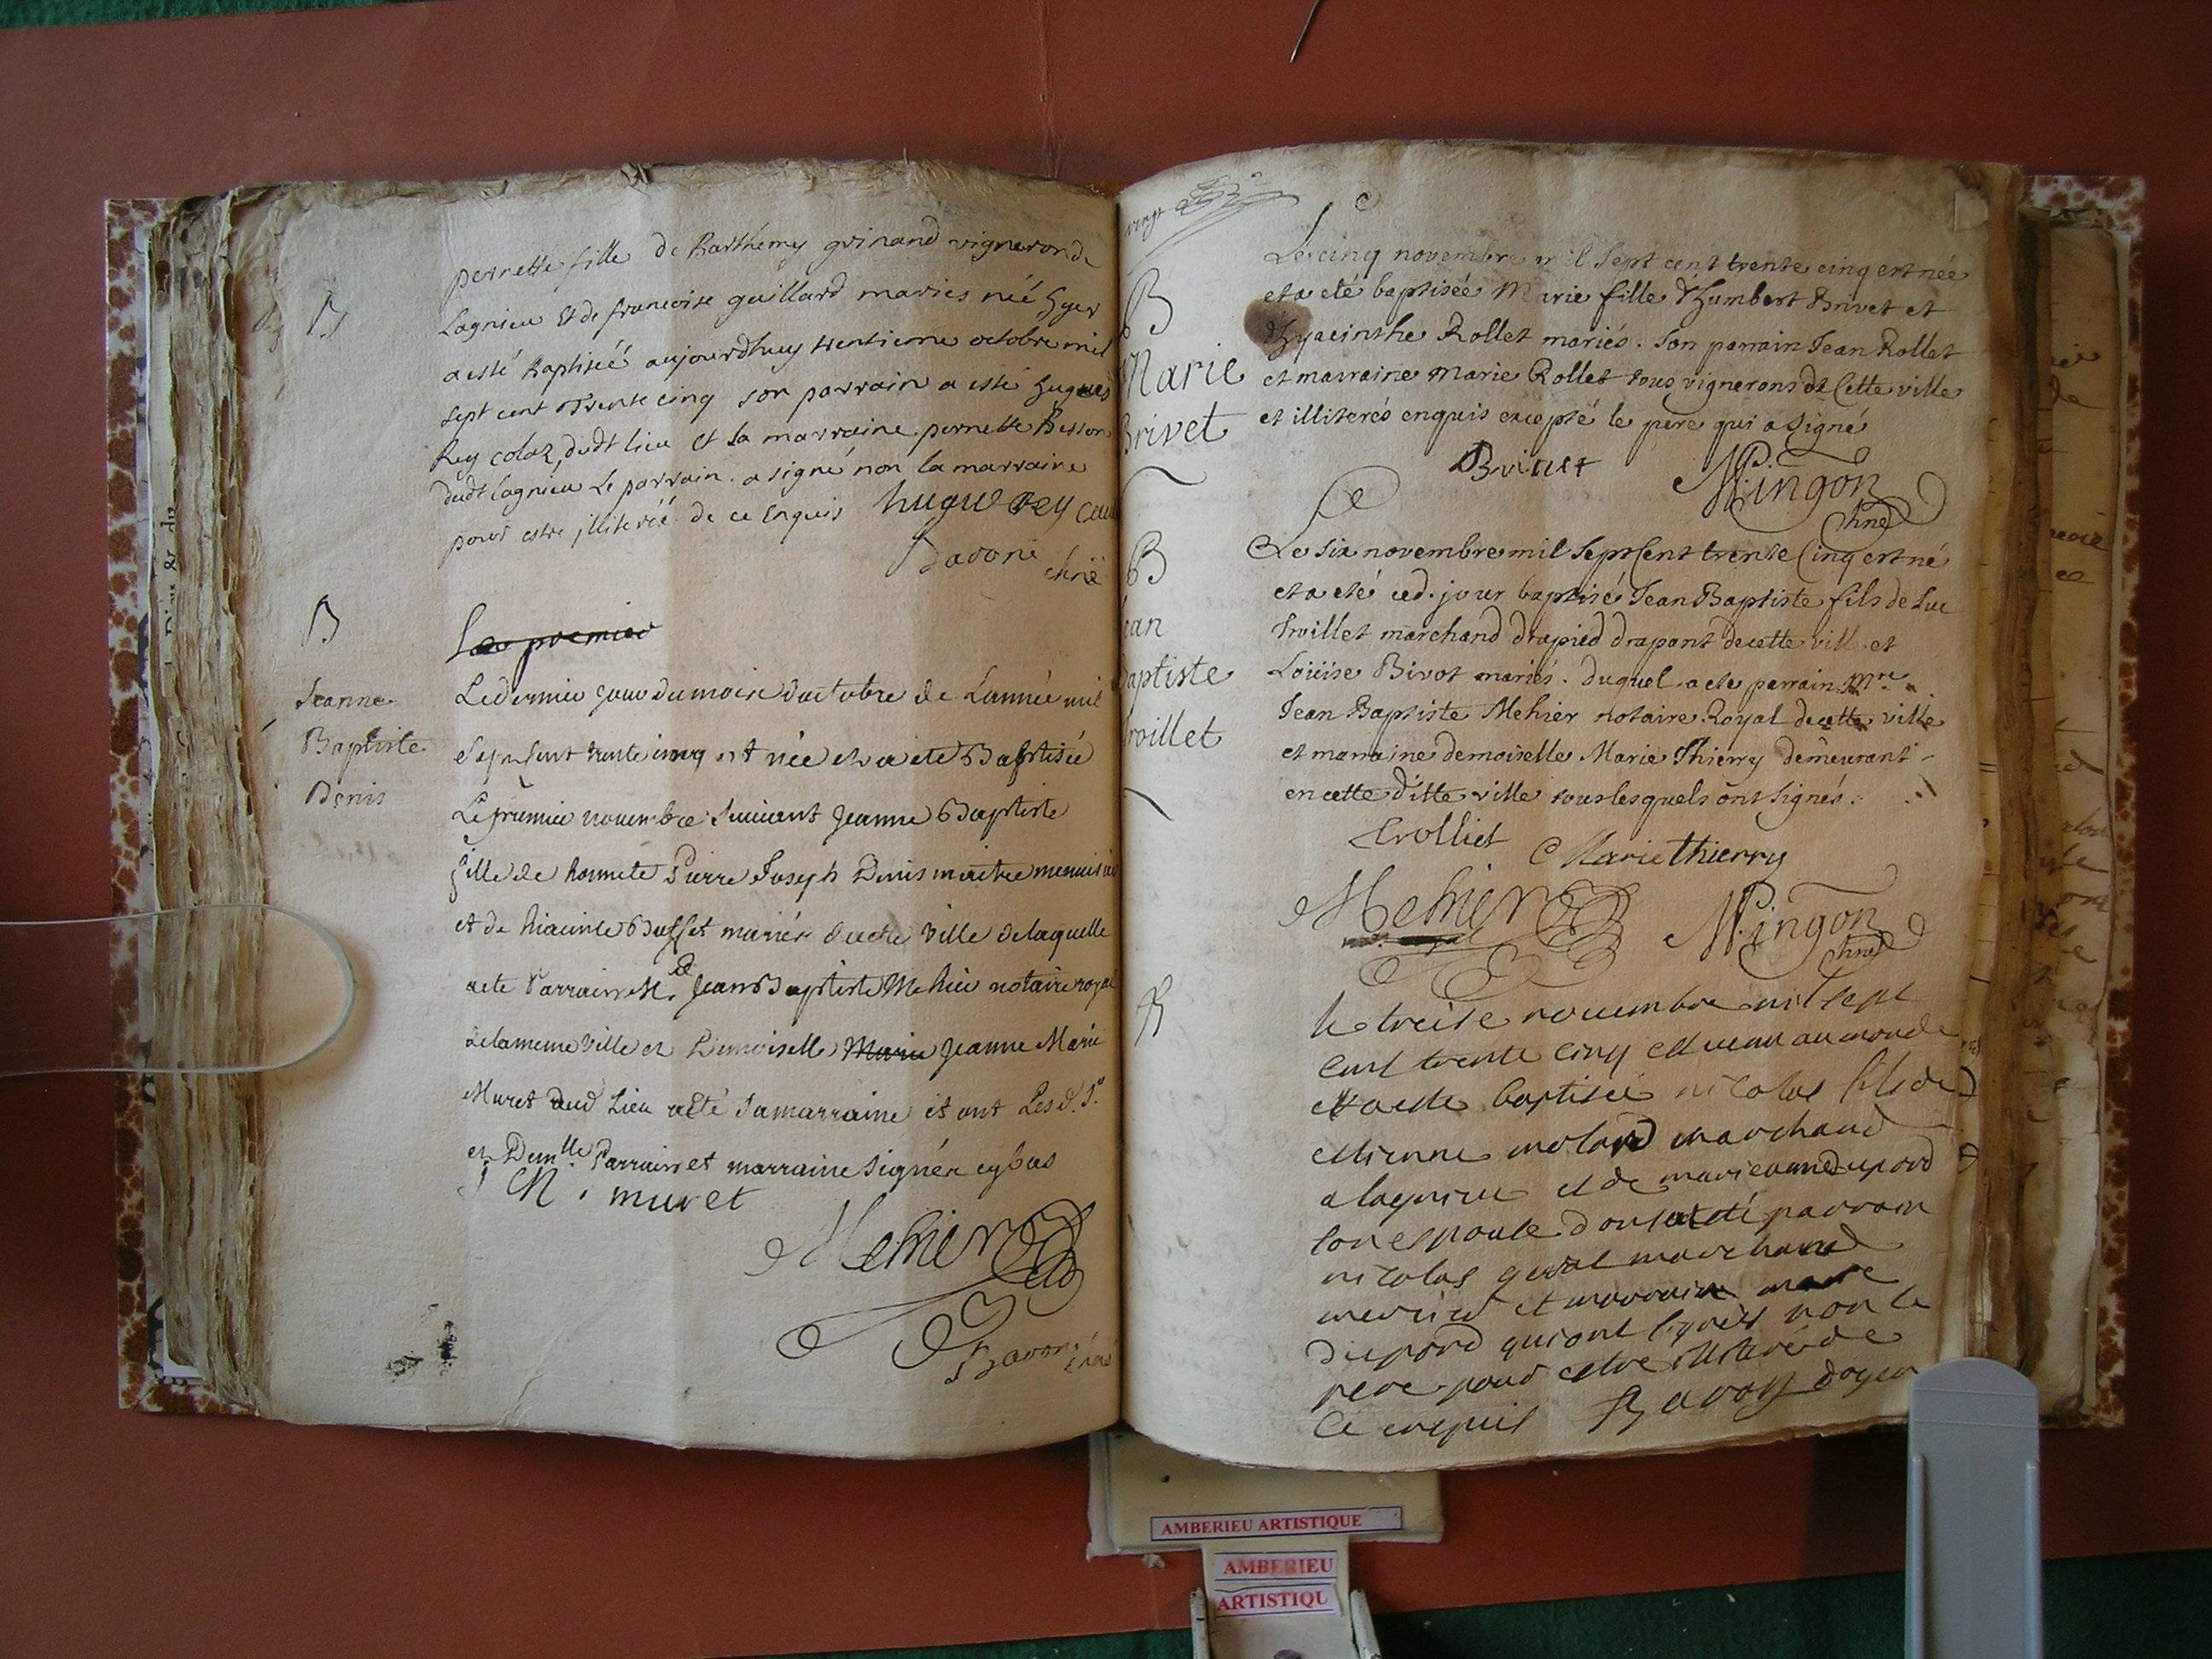 B
pernette fille de Barthemy grinand vigneron de
Lagnieu Et de francoise guillard mariés née hyer
a esté Baptiséé aujourdhuy trentieme octobre mil
sept cent Trente cinq son parrain a esté hugues
Rey colaz, dudt lieu et sa marraine pernette Besson
dudt lagnieu Le parrain a signé non la marraine
pour estre jlliteréé de ce Enquis hugue Rey
B
Le premier
Jeanne
Baptiste
Denis
Le dernier jour du mois doctobre de Lannéé mil
sept cent trente cinq est née et a eté Baptisée
Le premier novembre suivant jeanne Baptiste
fille de honnete Pierre Joseph Denis maitre menuisier
et de hiacinte mariés ville de laquelle
a ete Parrain Mr jean Baptiste Mehier notaire royal
de la meme ville et Demoiselle Marie jeanne Marie
Muret dud Lieu a eté sa marraine et ont Les d. Sr
et Demlle Parrain et marraine signés cy bas
muret
Mehier
vingt
B
Marie
Brivet
Le cinq novembre mil sept cent trente cinq est née
et a eté baptisée Marie fille d'humbert Brivet et
d'hyacinthe Rollet mariés. Son parrain Jean Rollet
et marraine Marie Rollet tous vignerons de Cette ville
et illiterés enquis excepté le pere qui a signé
Brivet Mingon
chne
B
ean
Baptiste
Le six novembre mil sept Cent trente Cinq est né
et a eté ced. jour baptisé Jean Baptiste fils de Luc
Troillet marchand drapier drapant de cette ville et
Loüise Bivot mariés. duquel a eté parrain Mre
Jean Baptiste Mehier notaire Royal de cette ville
et marraine demoiselle Marie Thierry demeurant
en cette ditte ville tous lesquels ont signés.
Trolliet Marie thierry
Mehier Mingon
chne
B
le treise novembre mil sept
cent trente cinq est venu au monde
et a este baptisé nicolas fils de
estienne molard marchand
a lagnieu et de marie anne dupord
son espouse dont a esté parrain
nicolas marchand
mercier et marraine marie
dupord qui ont signés non le
pere pour estre illiteré de
ce enquis doyen
AMBERIEU ARTISTIQUE
AMBERIEU
ARTISTIQU